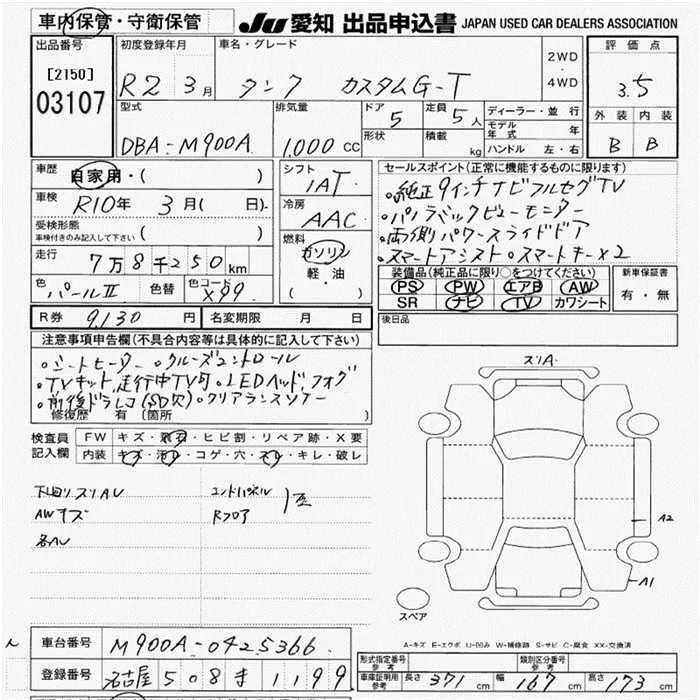 車内保管・守衛保管
JU 愛知 出品申込書 JAPAN USED CAR DEALERS ASSOCIATION
出品番号
[2150]
03107
初度登録年月
R2 3月
車名・グレード
タンク カスタムG-T
2WD
・
4WD
評価点
3.5
外装 内装
B B
型式
DBA-M900A
排気量
1,000 CC
ドア
5
形状
定員
5人
積載
kg
ディーラー・並行
モデル年式 年
ハンドル 左・右
車歴
自家用・( )
車検
R10年 3月( 日)
受検形態
車検付きのみ記入して下さい ( )
走行
7万8千250km
色
パールⅡ
色替
色コード
X99
シフト
IAT
冷房
AAC
燃料
ガソリン
軽・油
( )
セールスポイント(正常に機能するものに限ります)
。純正9インチナビフルセグTV
。パノラミックビューモニター
。両側パワースライドドア
。スマートアシスト 。スマートキーx2
装備品(純正品に限り○をつけてください)
PS PW エアB AW
SR ナビ TV カワシート
新車保証書
有・無
R券 9,130円
名変期限 月 日
後日品
注意事項申告欄(不具合内容等は具体的に記入して下さい)
。シートヒーター 。クルーズコントロール
。TVキット,走行中TV可 。LEDヘッド,フォグ
。前後ドラレコ(SD欠)。クリアランスソナー
修復歴 有 (箇所 )
検査員
記入欄
FW キズ・飛石・ヒビ割・リペア跡・X要
内装 キズ・汚レ・コゲ・穴・スレ・キレ・破レ
下回りスリAU
AWキズ
各AU
エンドパネル
Rフロア
スリA
A2
A1
スペア
A-キズ E-エクボ U-凹み W-補修跡 S-サビ C-腐食 XX-交換済
車台番号 M900A-0425366
登録番号 名古屋 508 1199
形式指定番号
参考
類別区分番号
参考
車庫証明用
参考
長さ 371cm 幅 167cm 高さ 173cm